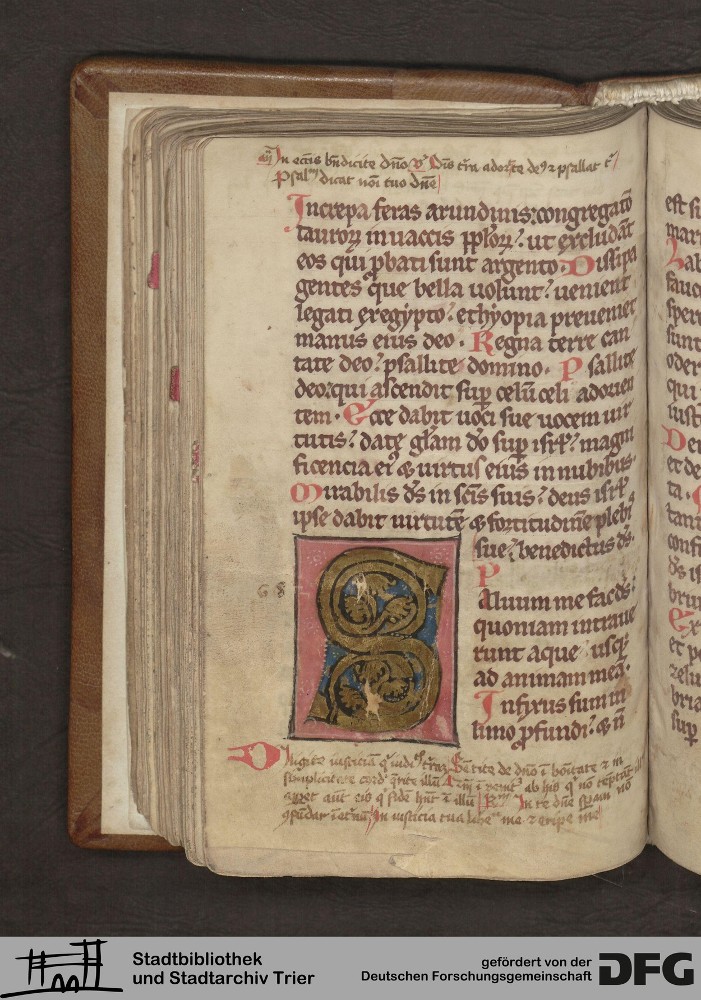 In eccīs bn̄dicite dn̄o
Psal dicat noī tuo dn̄e
Increpa feras arundinis: congregatō
tauroꝝ in vaccis pploꝝ: ut excludāt
eos qui ꝓbati sunt argento. Dissipa
gentes que bella uolunt: uenient
legati ex egypto: ethyopia preueniet
manus eius deo. Regna terre can
tate deo: psallite domino. Psallite
deo: qui ascendit sup celū celi ad orien
tem. Ecce dabit uoci sue uocem uir
tutis: date gl̄am dō sup isrl̄: magni
ficencia ei & uirtus eius in nubibus.
Mirabilis ds̄ in scīs suis: deus isrl̄
ipse dabit uirtutē & fortitudinē plebi
sue: benedictus ds̄.
68
S
P
Aluum me fac ds̄:
quoniam intraue
runt aque usqꝫ
ad animam meā.
Infixus sum in
limo ꝓfundi: & n̄
Diligite iusticiā
simplicitate cord q̄rite illū
In te dn̄e
In iusticia tua libe me & eripe me
est su
mari
Lab
fauc
sper
sunt
oder
qui
iust
De
et de
ta.
tani
conf
ds̄ is
bru
Ex
et p
zelu
bria
sup
Stadtbibliothek
und Stadtarchiv Trier
gefördert von der
Deutschen Forschungsgemeinschaft
DFG